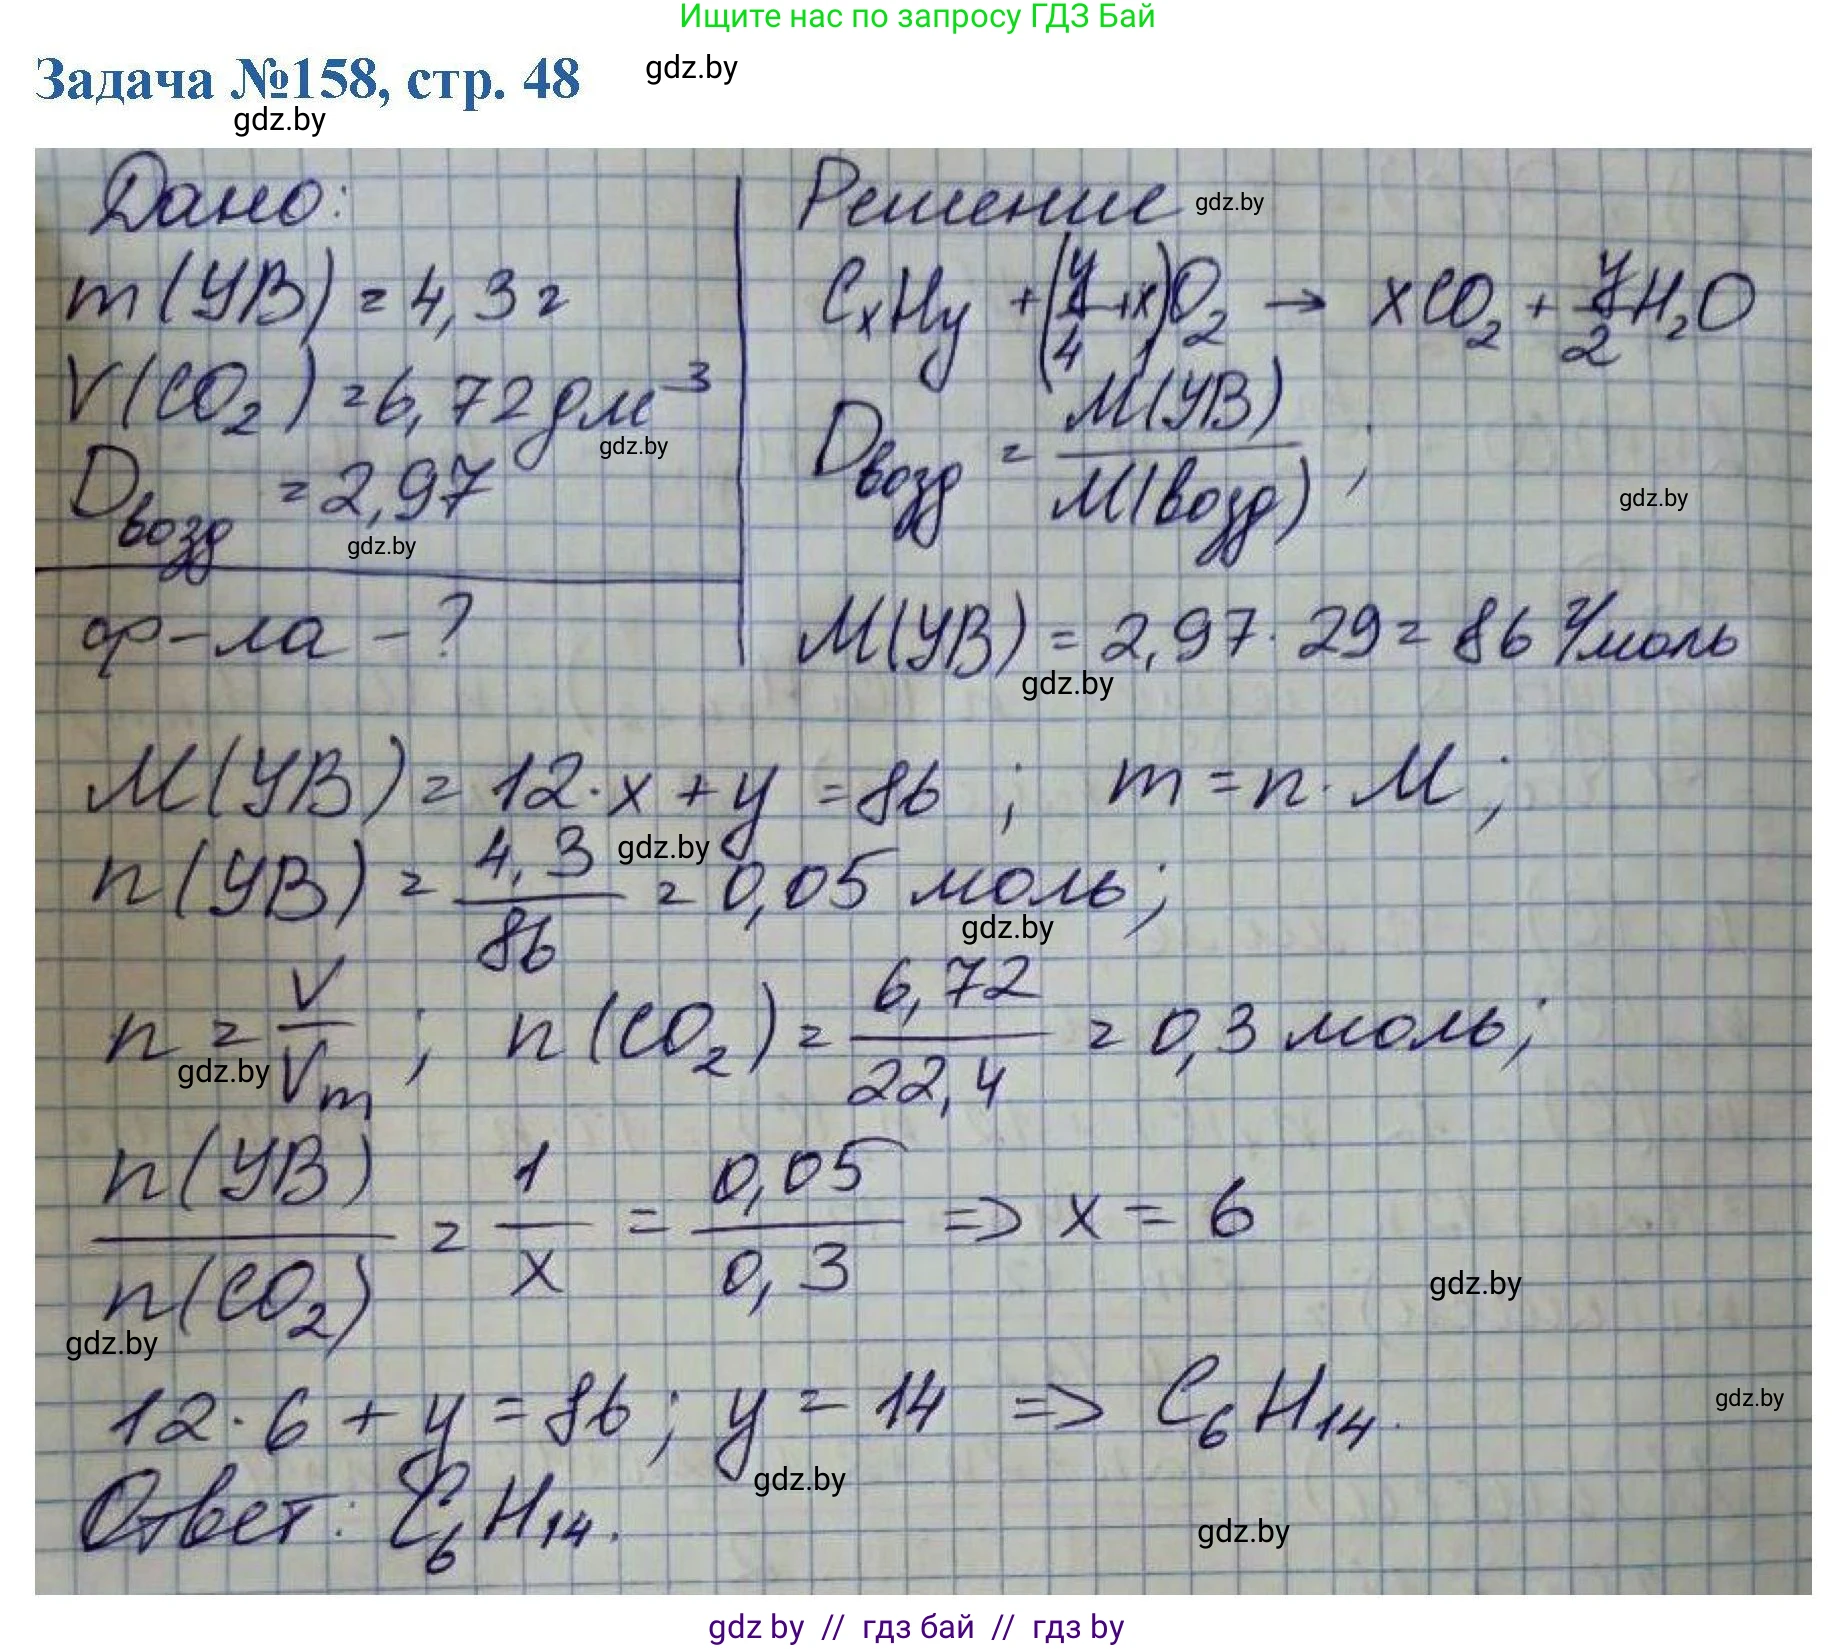 Ищите нас по запросу ГДЗ Бай
Задача №158, стр. 48
gdz.by
gdz.by
Дано:
m(УВ) = 4,3г
V(CO₂) = 6,72дм³
gdz.by
Dвозд = 2,97
gdz.by
ф-ла - ?
Решение
gdz.by
CₓHy + (y/4 + x)O₂ → xCO₂ + y/2 H₂O
Dвозд = M(УВ) / M(возд) ;
gdz.by
M(УВ) = 2,97 · 29 = 86 г/моль
gdz.by
M(УВ) = 12·x + y = 86 ; m = n · M ;
gdz.by
n(УВ) = 4,3 / 86 = 0,05 моль ;
gdz.by
n = V / Vm ; n(CO₂) = 6,72 / 22,4 = 0,3 моль ;
gdz.by
n(УВ) / n(CO₂) = 1 / x = 0,05 / 0,3 => x = 6
gdz.by
gdz.by
12·6 + y = 86 ; y = 14 => C₆H₁₄.
gdz.by
gdz.by
Ответ: C₆H₁₄.
gdz.by
gdz by // гдз бай // гдз by